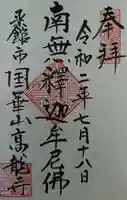 奉拝
令和二年七月十八日
南無釋迦牟尼佛
函館市 国華山高龍寺